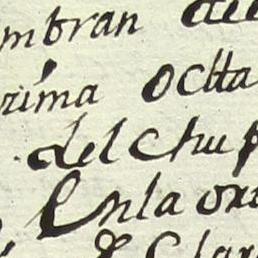 mbran del
rima octta
del chup
En la ori
& Clar